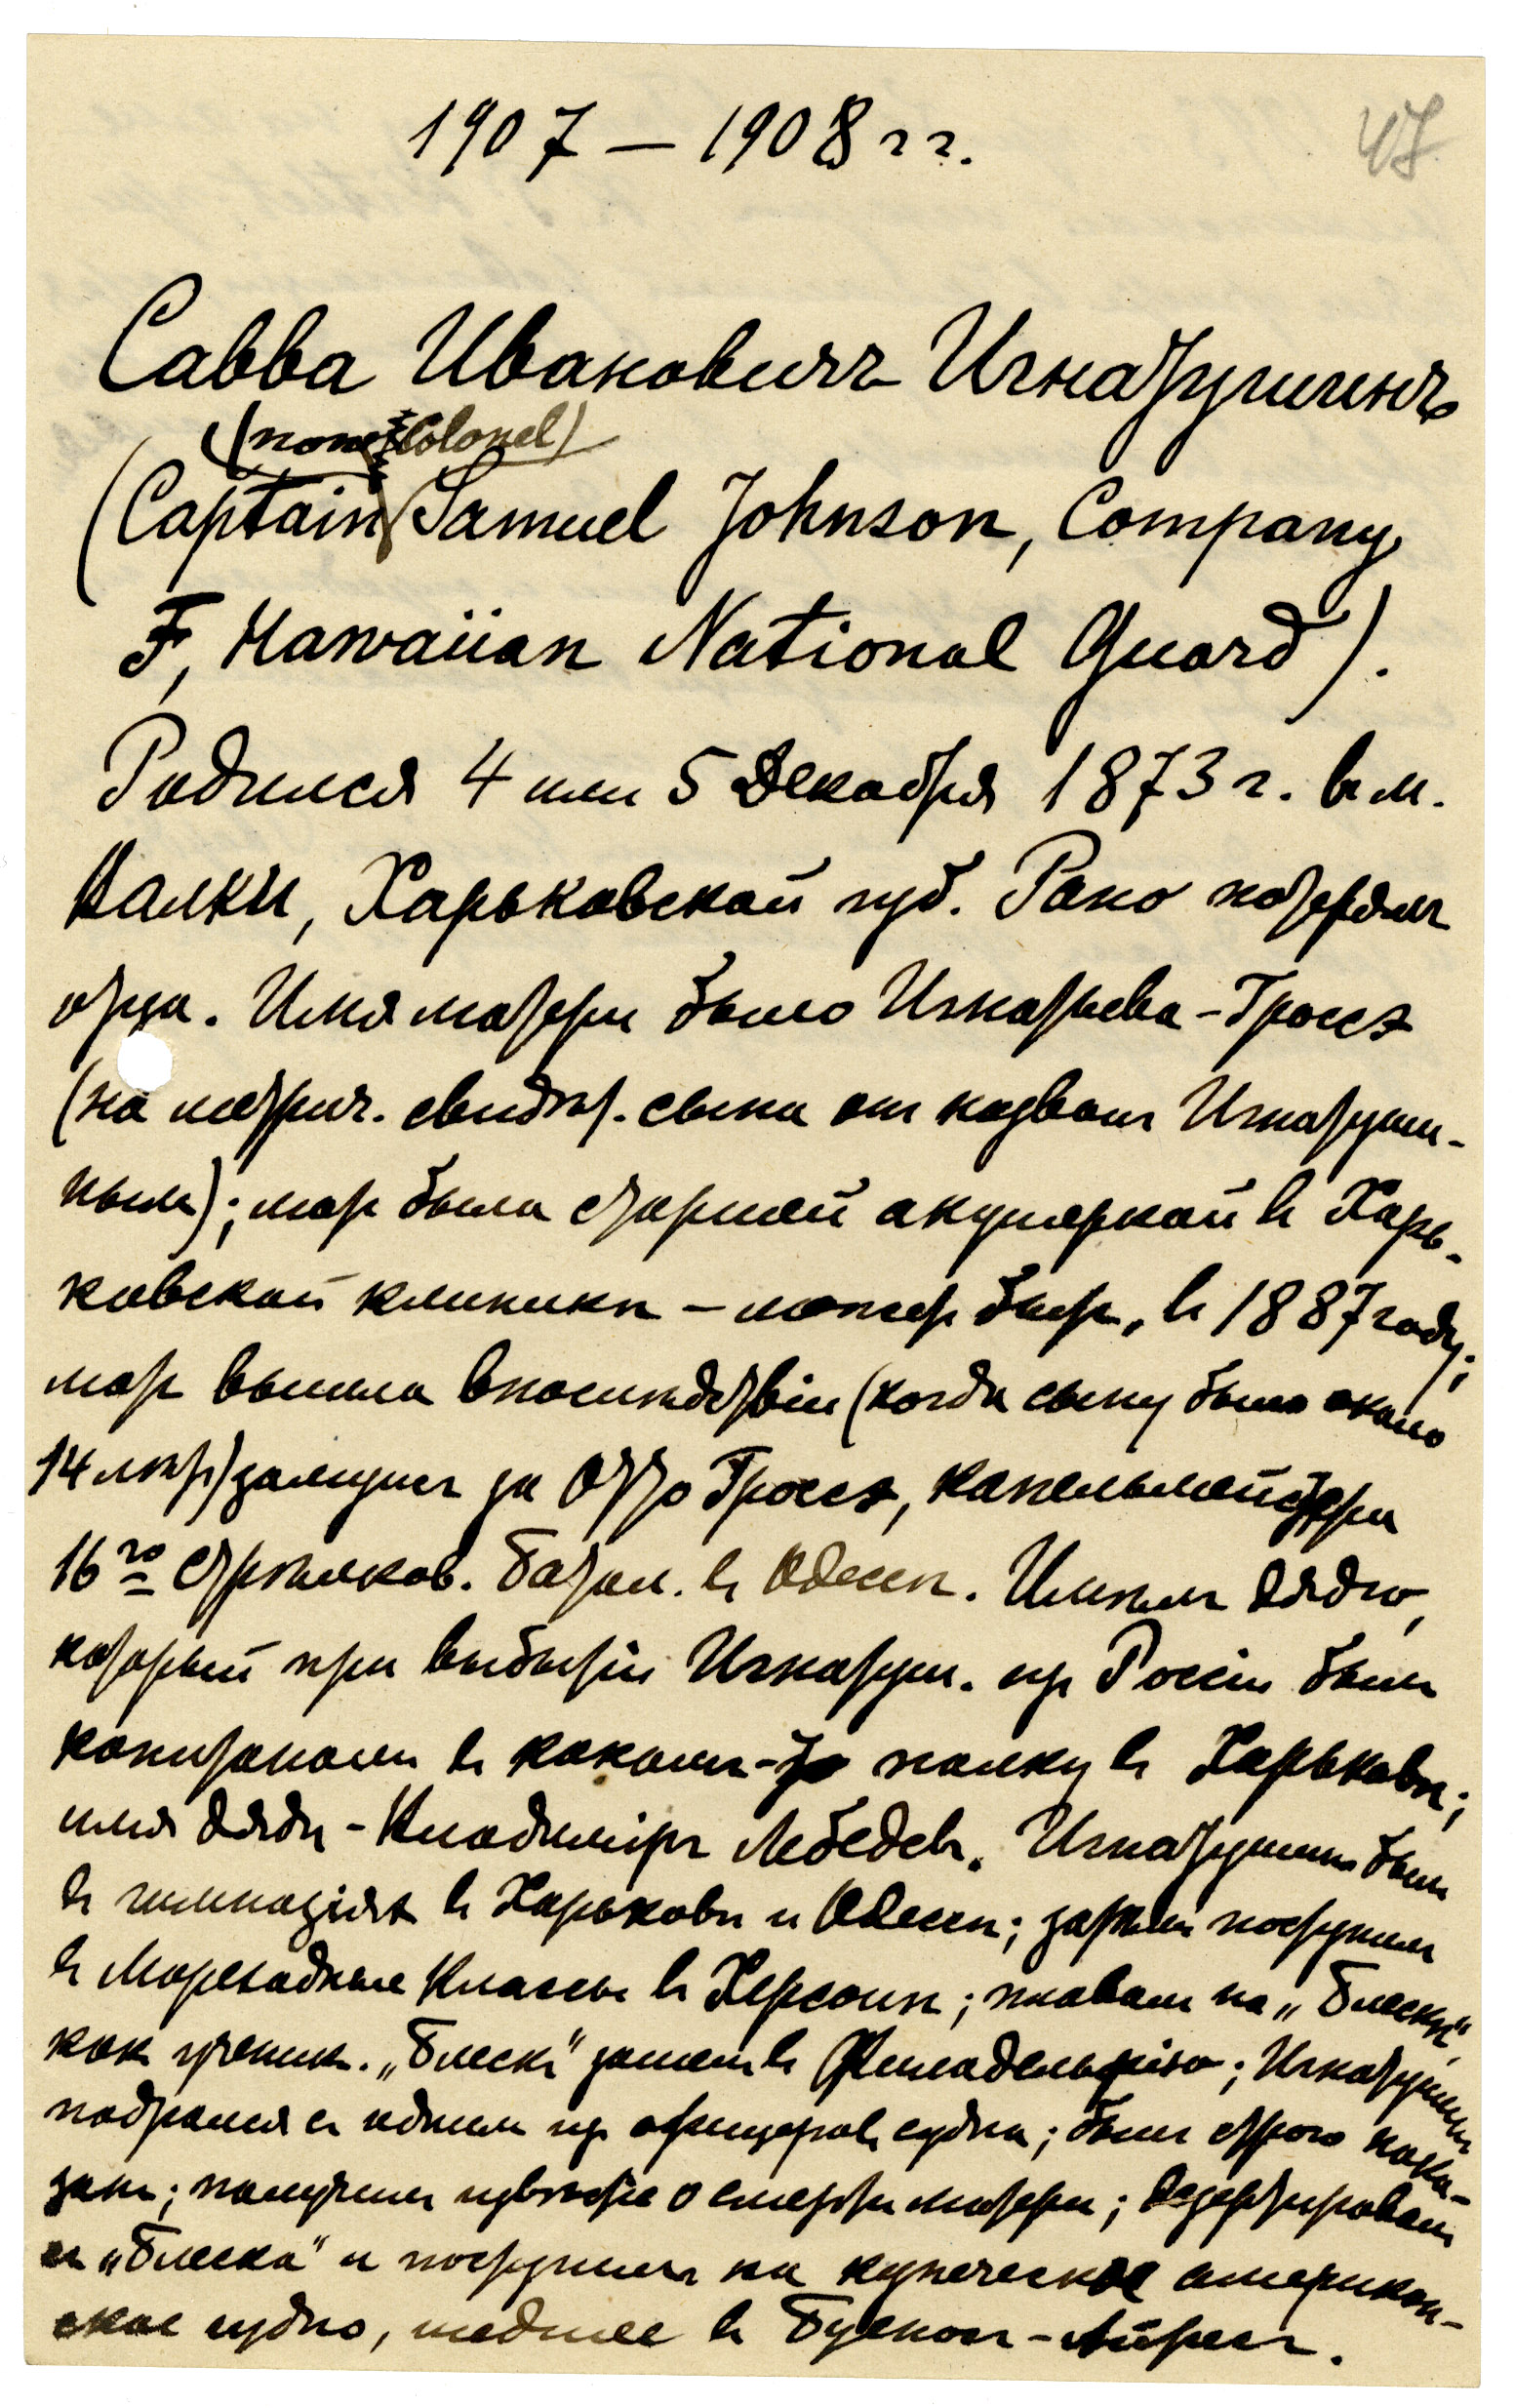 1907 – 1908 гг.
47
Савва Ивановичъ Игнатушинъ
(now Colonel)
(Captain Samuel Johnson, Company
F, Hawaiian National Guard).
Родился 4 или 5 Декабря 1873 г. въ м.
Валки, Харьковской губ. Рано потерялъ
отца. Имя матери было Игнатьева-Гроссъ
(на метрич. свидѣт. сына он назван Игнатуши-
ным); мать была старшей акушеркой въ Харь-
ковской клиникѣ – может быть, въ 1887 году;
мать вышла впослѣдствіи (когда сыну было около
14 лѣтъ) замуж за Отто Гроссъ, капельмейстера
16го стрѣлков. батал. въ Одессѣ. Имѣлъ дядю,
который при выбытіи Игнатуш. из Россіи был
капитаном въ каком-то полку въ Харьковѣ;
имя дяди – Владиміръ Лебедев. Игнатушин был
въ гимназіях въ Харьковѣ и Одессѣ; затѣм поступил
въ Мореходные Классы въ Херсонѣ; плавал на „Блескѣ",
как ученик. „Блескъ" зашел въ Филадельфію; Игнатушин
подрался съ одним из офицеров судна; был строго нака-
зан; получил извѣстіе о смерти матери; дезертировал
съ „Блеска" и поступил на купеческое американ-
ское судно, шедшее въ Буенос-Айрес.